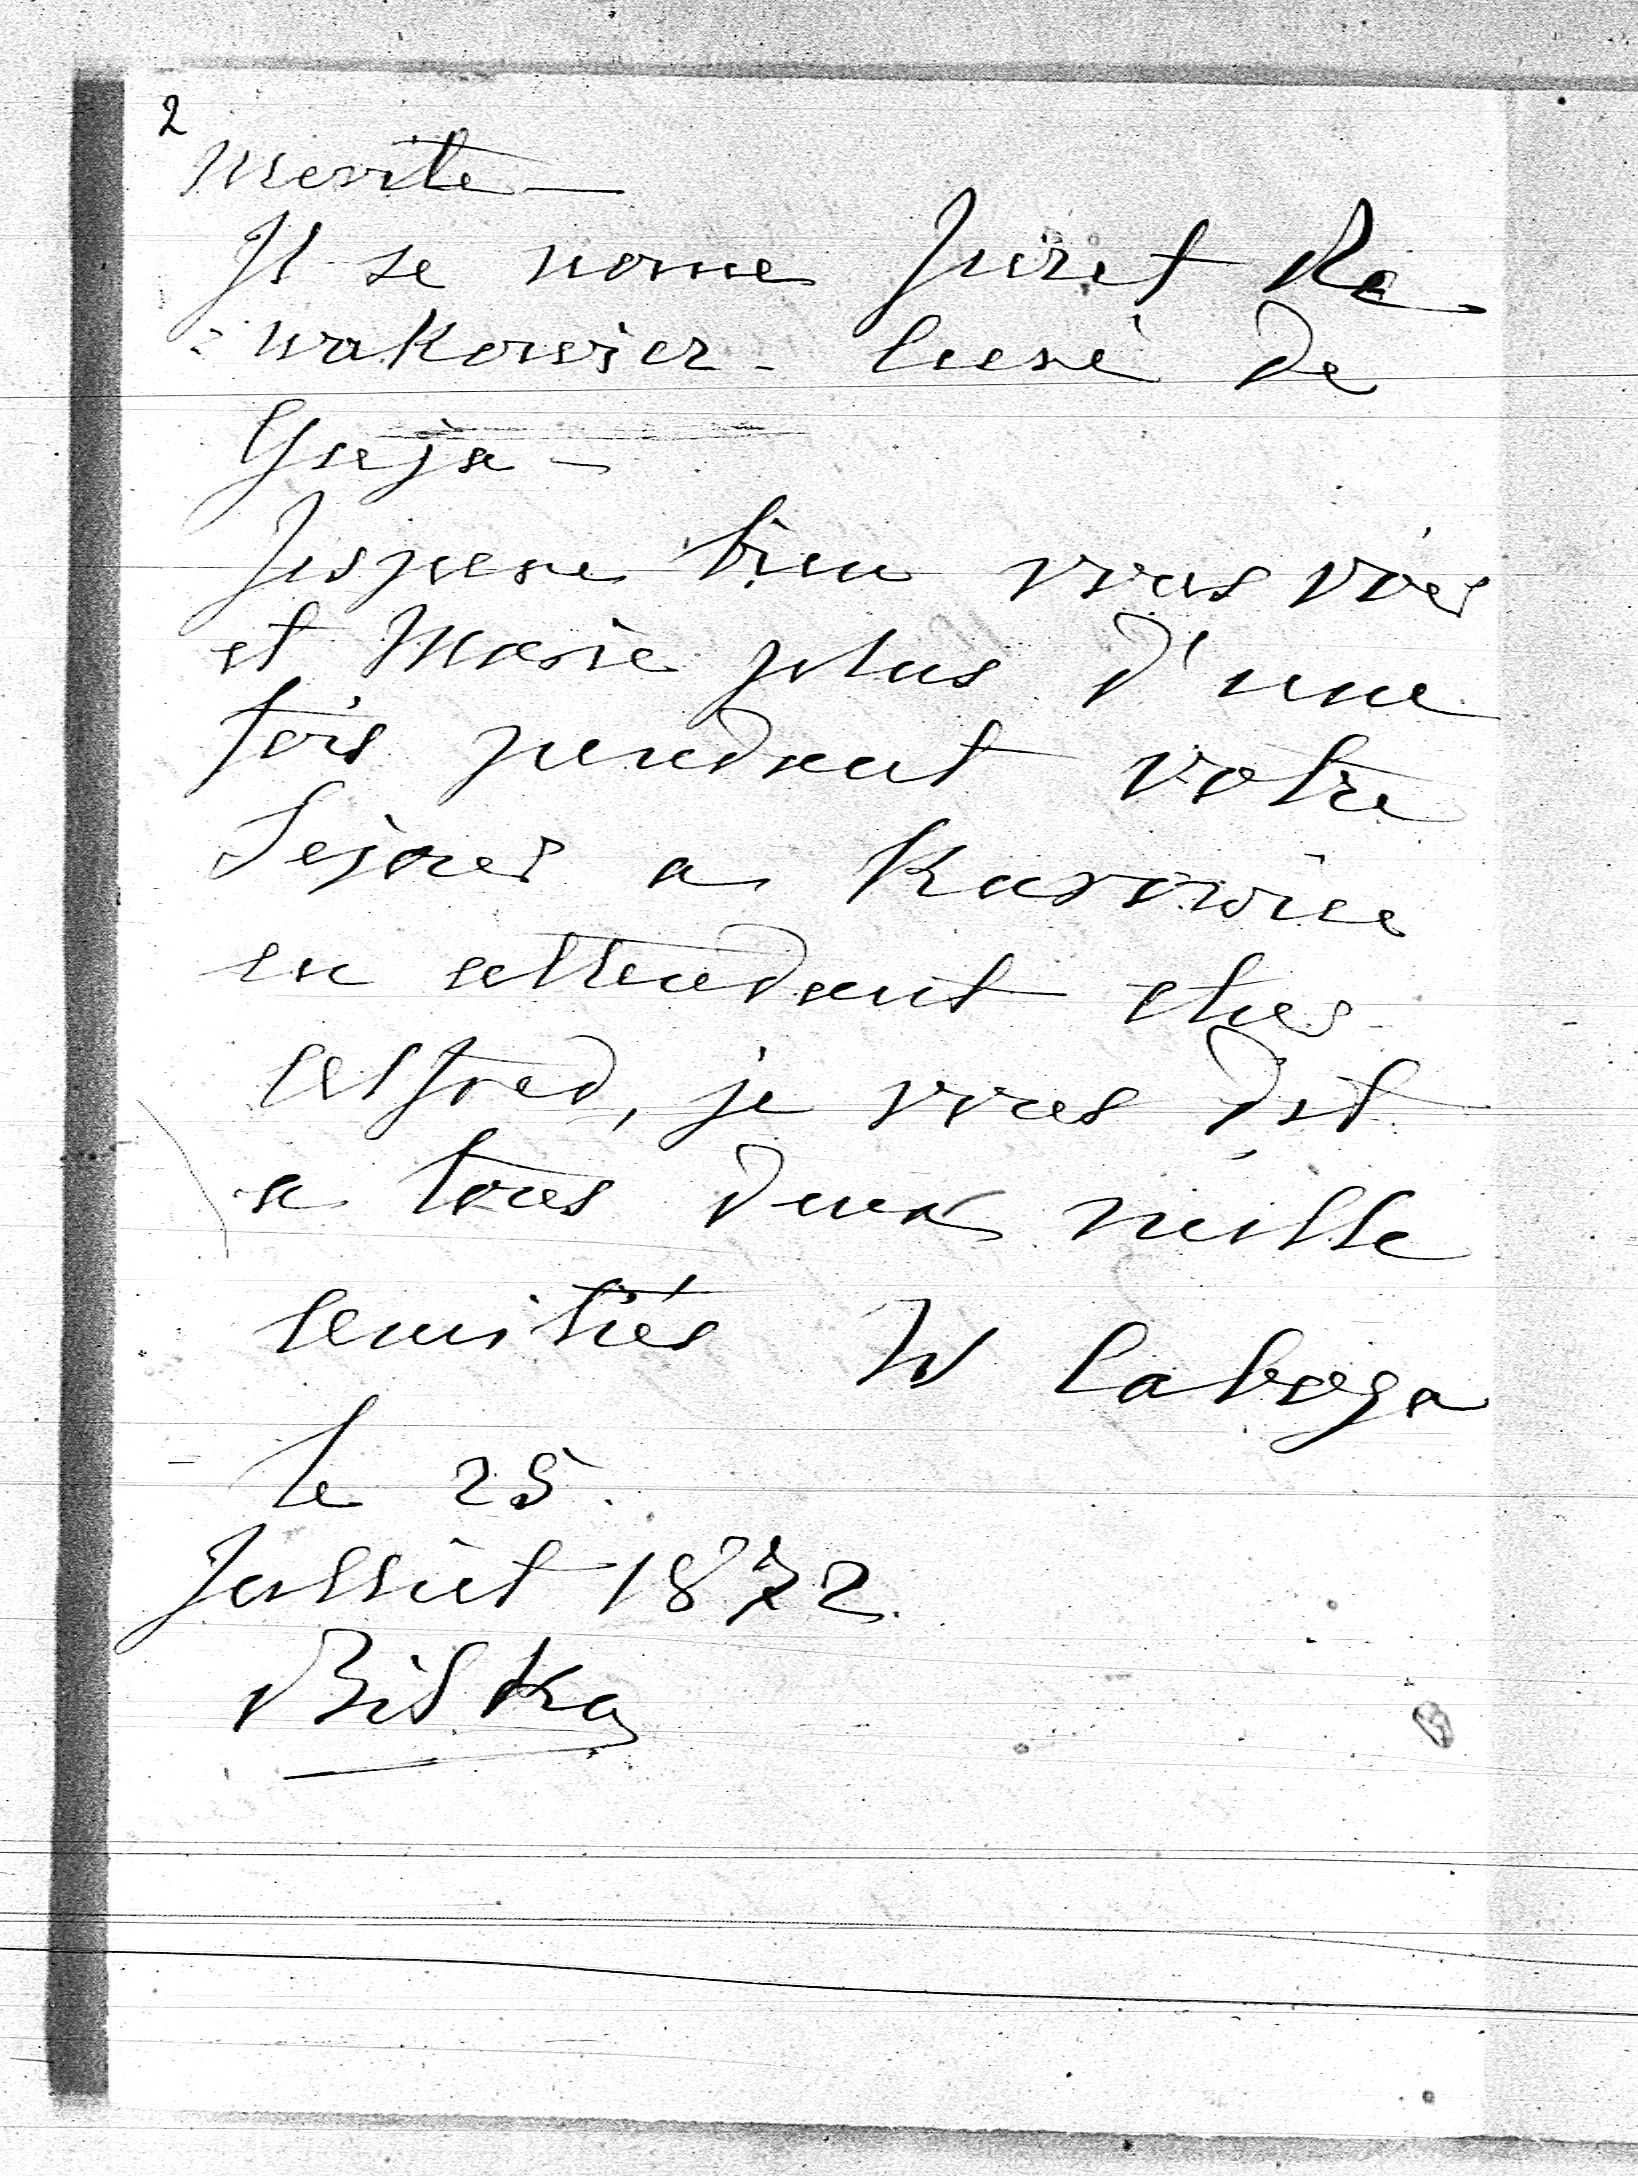 2
merite —
Il se nome Juzet Re
= wakowicz - Curé de
Gaja -
Jespere bien vous voir
et Marie plus d'une
fois pendant votre
Sejour a Karwice
en attendant cher
Alfred, je vous dit
a tous deux mille
amitiés W Caboga
le 25.
Julliet 1872.
Bilka